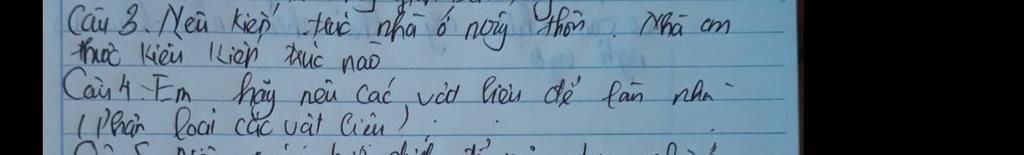 Câu 3. Nêu kiến trúc nhà ở nông thôn. Nhà em
thuộc kiểu kiến trúc nào
Câu 4. Em hãy nêu các vật liệu để làm nhà
(Phân loại các vật liệu)